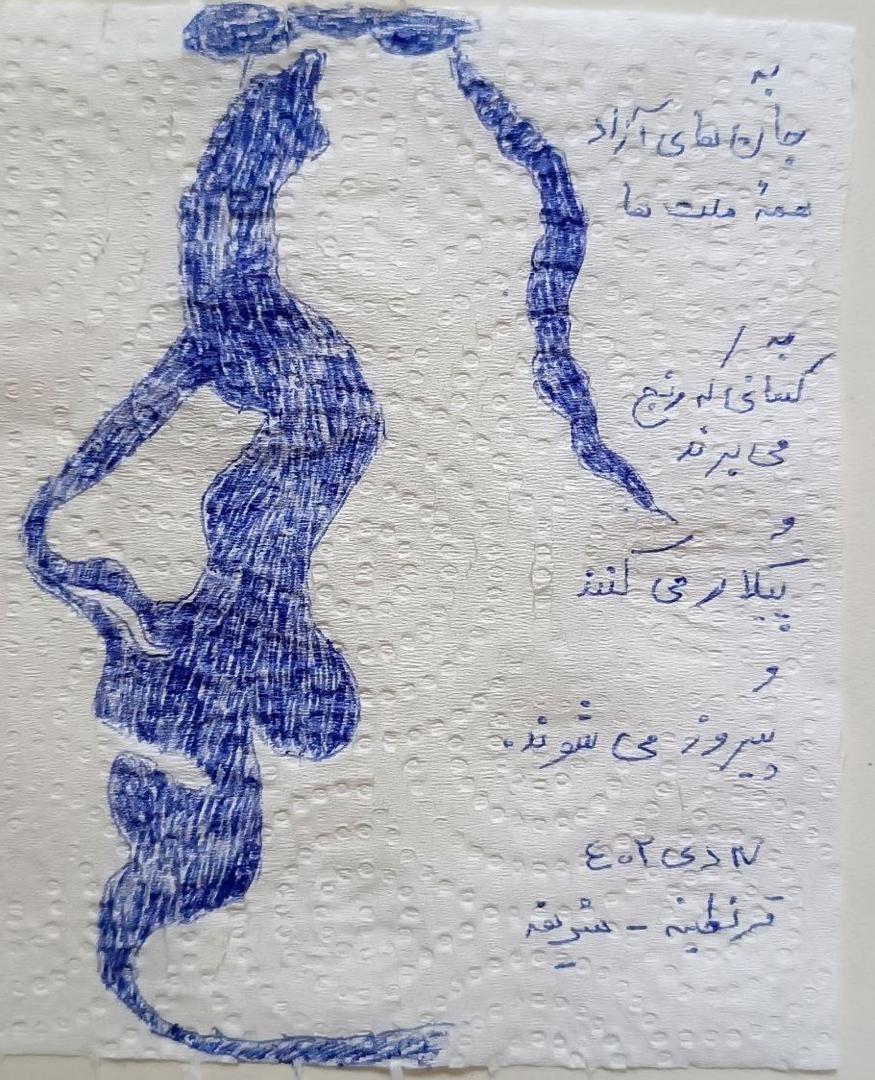 به
جان‌های آزاد
همهٔ ملت ها
به
کسانی که رنج
می برند
و
پیکار می کنند
و
پیروز می شوند.
دی ۴۰۲
قرنطینه - شریفه